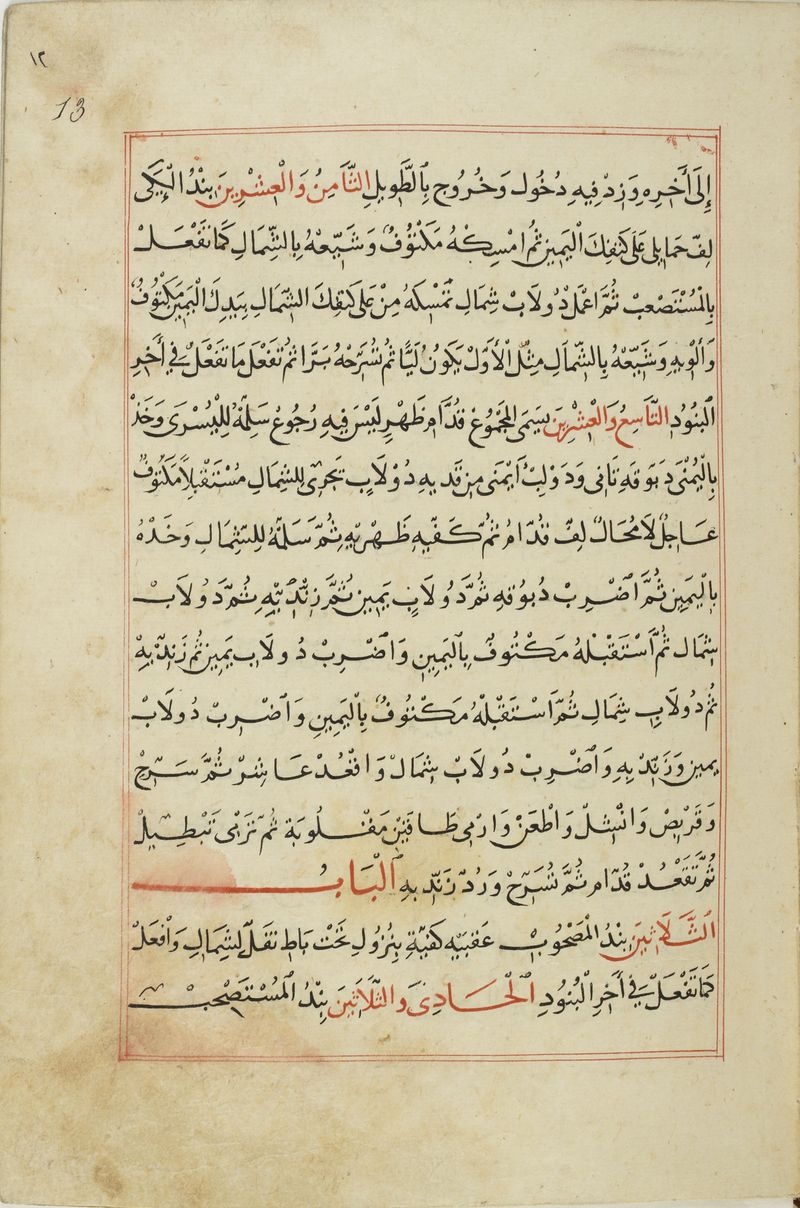 ١٢
13
إِلَى أَخِرِهِ وَزِدْ فِيهِ دُخُول وَخُرُوج بِالطَّوِيلِ الثَّامِنُ وَالْعِشْرِينَ بِنْدُ
لِفّ حَمَايلِى عَلَى كَتِفِكَ الْيَمِينِ ثُمَّ امْسِكْهُ مَكْتُوفٌ وَشَيِّعْهُ بِالشِّمَالِ كَمَا تَفْعَلْ
بِالْمُسْتَصْعِبْ ثُمَّ اعْمَلْ دُولَابْ شِمَالِ تَمْسِكَهُ مِنْ عَلَى كَتِفِكَ الشِّمَالِ بِيَدِكَ الْيَمِينِ مَكْتُوفٌ
وَالْوِيهِ وَشَيِّعْهُ بِالشِّمَالِ مِثْلْ الْأَوَّلْ يَكُونُ لَيًّا ثُمَّ تُسَرِّحْهُ بَرَّا ثُمَّ تَفْعَلْ مَا تَفْعَلْ فِي أَخِرِ
الْبُنُودِ التَّاسِعُ وَالْعِشْرِينَ يسَمَى الْمَجْمُوعْ قُدَّام ظَهْرٍ لَيْسَ فِيهِ رُجُوعْ سَلِمْهُ لِلْيُسْرَى وَخَذْ
بِالْيُمْنَى دَبَوقَهِ تَانِى وَدَوْلِبْ أَيْمَنَى مِن قَدِيهِ دُوْلَابٍ تَجْرِى لِلشِّمَالِ مُسْتَقْبِلاً مَكْتُوفٌ
عَاجِلْ لَا مُحَالْ لِفّ قُدَّامُ ثُمَّ كَفِّيهِ ظَهْرِيهِ ثُمَّ سَلِمْهُ لِلشِّمَالِ وَخَذْهُ
بِالْيَمِينِ ثُمَّ اضْرِبْ دُبُوقهِ ثُمَّ دُولَابٍ يَمِينِ ثُمَّ زَنِّدْ بِهِ ثُمَّ دُولَابْ
شِمَال ثُمَّ اسْتَقْبِلْهُ مَكْتُوفٌ بِالْيَمِينِ وَاضْرِبْ دُولَابٍ يَمِينِ ثُمَّ زَنِدْ بِهْ
ثُمَّ دُولَابِ شِمَالِ ثُمَّ اسْتَقْبِلْهُ مَكْتُوفٌ بِالْيَمِينِ وَاضْرِبْ دُولَابْ
يمين وَزَنِّدْ بِهِ وَاضْرِبْ دُولَابْ شِمَالْ وَاقْعُدْ عَاشِرْ ثُمَّ سَرِّحْ
وَقَرْبِصْ وَانْشِلْ وَاطْعَنْ وَارْمِى طَاقَيْنِ مَقْلُوبَة ثُمَّ تَرْمِى تَبْطِيلْ
ثُمَّ تَقْعُدْ قُدَّام ثُمَّ تُسَرِّحْ وَرُدّ زَنِّد بِهِ الْبَابُ
الثَّلَاثِينَ بِنْدُ الْمَصْحُوبْ عَقبِيّه كَفيّهِ بِنُزُولِ تَحْتْ بَاطِ تَقَلْ لشِمَالِ وَافْعَلْ
كَمَا تَفْعَلْ فِي أَخِرِ الْبُنُودِ الْحَادِىَ وَالثَّلَاثِينَ بِنْدُ الْمُسْتَصْحِبْ